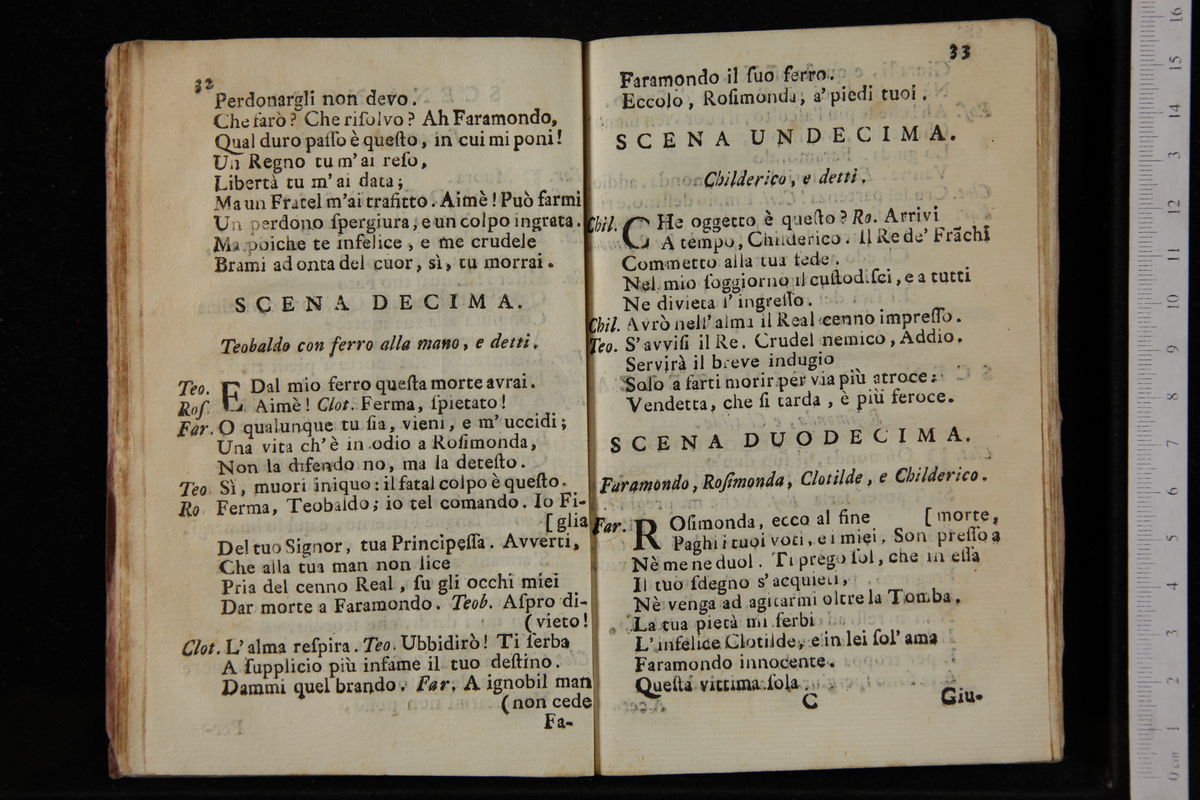 32
Perdonargli non devo.
Che farò? Che riſolvo? Ah Faramondo,
Qual duro paſſo è queſto, in cui mi poni!
Un Regno tu m'ai reſo,
Libertà tu m'ai data;
Ma un Fratel m'ai trafitto. Aimè! Può farmi
Un perdono ſpergiura, e un colpo ingrata.
Ma poiche te infelice, e me crudele
Brami ad onta del cuor, sì, tu morrai.
SCENA DECIMA.
Teobaldo con ferro alla mano, e detti.
Teo. E Dal mio ferro queſta morte avrai.
Roſ. Aimè! Clot. Ferma, ſpietato!
Far. O qualunque tu ſia, vieni, e m'uccidi;
Una vita ch'è in odio a Roſimonda,
Non la difendo no, ma la deteſto.
Teo Sì, muori iniquo: il fatal colpo è queſto.
Ro Ferma, Teobaldo; io tel comando. Io Fi-
[glia
Del tuo Signor, tua Principeſſa. Avverti,
Che alla tua man non lice
Pria del cenno Real, ſu gli occhi miei
Dar morte a Faramondo. Teob. Aſpro di-
(vieto!
Clot. L'alma reſpira. Teo. Ubbidirò! Ti ſerba
A ſupplicio più infame il tuo deſtino.
Dammi quel brando. Far. A ignobil man
(non cede
Fa-
33
Faramondo il ſuo ferro.
Eccolo, Roſimonda, a' piedi tuoi.
SCENA UNDECIMA.
Childerico, e detti.
Chil. CHe oggetto è queſto? Ro. Arrivi
A tempo, Childerico. Il Re de' Frãchi
Commetto alla tua fede.
Nel mio ſoggiorno il cuſtodiſci, e a tutti
Ne divieta l'ingreſſo.
Chil. Avrò nell'alma il Real cenno impreſſo.
Teo. S'avviſi il Re. Crudel nemico, Addio.
Servirà il breve indugio
Solo a farti morir per via più atroce:
Vendetta, che ſi tarda, è più feroce.
SCENA DUODECIMA.
Faramondo, Roſimonda, Clotilde, e Childerico.
Far. ROſimonda, ecco al fine [morte,
Paghi i tuoi voti, e i miei. Son preſſo a
Nè me ne duol. Ti prego ſol, che in eſſa
Il tuo ſdegno s'acquieti,
Nè venga ad agitarmi oltre la Tomba.
La tua pietà mi ſerbi
L'infelice Clotilde, e in lei ſol'ama
Faramondo innocente.
Queſta vittima ſola
C Giu-